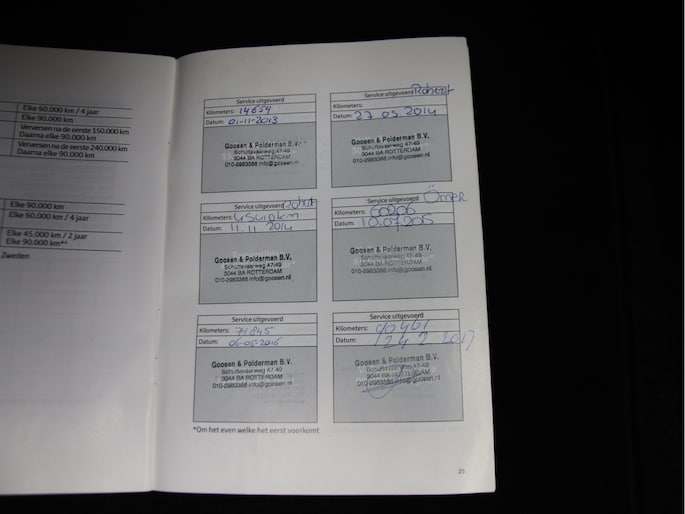 Elke 60.000 km / 4 jaar
Elke 90.000 km
Verversen na de eerste 150.000 km
Daarna elke 90.000 km
Verversen na de eerste 240.000 km
Daarna elke 90.000 km
Elke 90.000 km
Elke 60.000 km / 4 jaar
Elke 45.000 km / 2 jaar
Elke 90.000 km*¹
Zweden
Service uitgevoerd
Kilometers: 14654
Datum: 01-11-2013
Goosen & Polderman B.V.
Schuttevaerweg 47-49
3044 BA ROTTERDAM
010-2983388 info@goosen.nl
Service uitgevoerd Robert
Kilometers:
Datum: 27 05 2014
Goosen & Polderman B.V.
Schuttevaerweg 47-49
3044 BA ROTTERDAM
010-2983388 info@goosen.nl
Service uitgevoerd Robert
Kilometers:
Datum: 11.11.2014
Goosen & Polderman B.V.
Schuttevaerweg 47-49
3044 BA ROTTERDAM
010-2983388 info@goosen.nl
Service uitgevoerd Ömer
Kilometers: 60206
Datum:
Goosen & Polderman B.V.
Schuttevaerweg 47-49
3044 BA ROTTERDAM
010-2983388 info@goosen.nl
Service uitgevoerd
Kilometers: 74845
Datum: 06-05-2016
Goosen & Polderman B.V.
Schuttevaerweg 47-49
3044 BA ROTTERDAM
010-2983388 info@goosen.nl
Service uitgevoerd
Kilometers: 90461
Datum: 24 2 2017
Goosen & Polderman B.V.
Schuttevaerweg 47-49
3044 BA ROTTERDAM
010-2983388 info@goosen.nl
*Om het even welke het eerst voorkomt
25